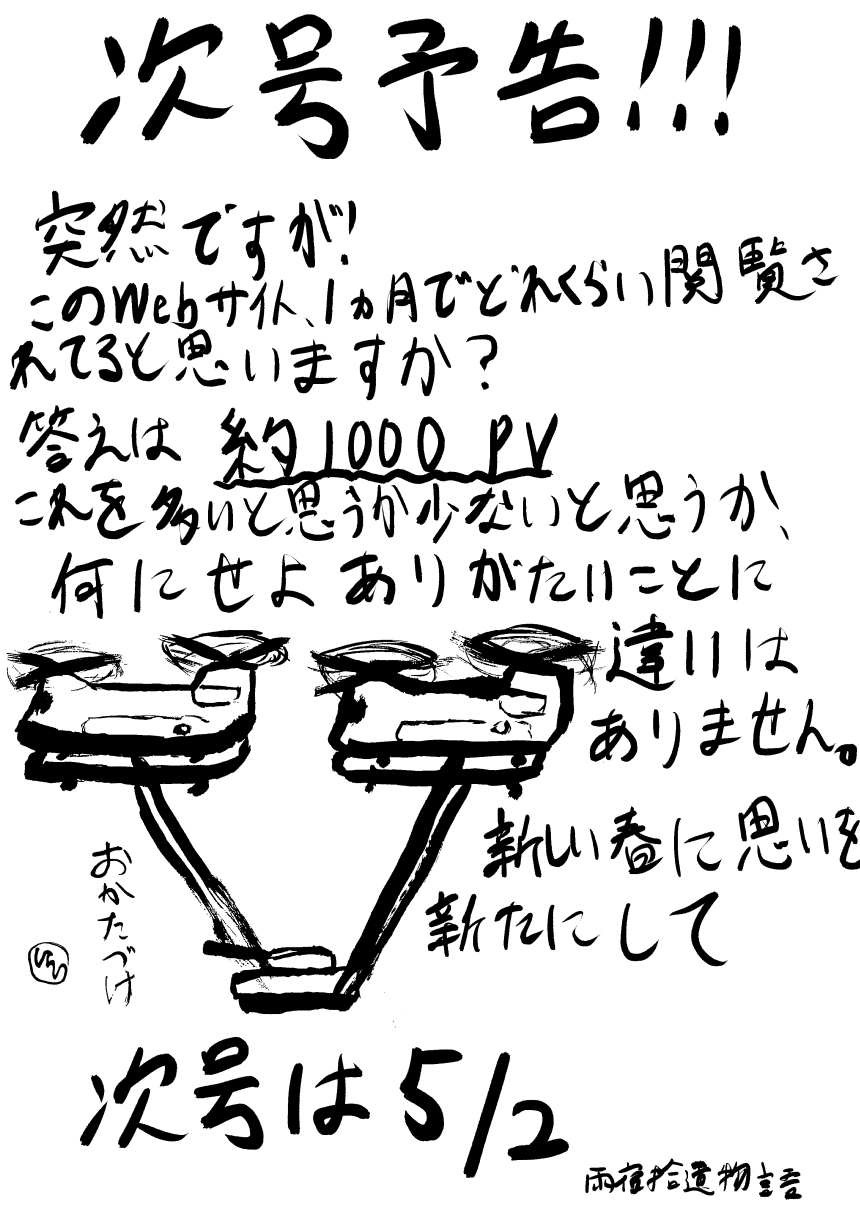 次号予告!!!
突然ですが!
このWebサイト、1ヵ月でどれくらい閲覧さ
れてると思いますか?
答えは 約1000 PV
これを多いと思うか少ないと思うか、
何にせよありがたいことに
違いは
ありません。
新しい春に思いを
新たにして
おかたづけ
次号は5/2
雨宿拾遺物語